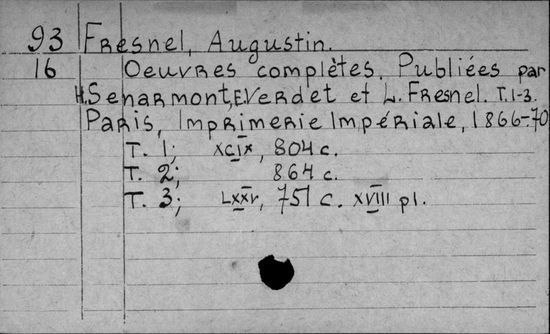 93 Fresnel, Augustin.
16 Oeuvres complètes. Publiées par
H. Senarmont, E. Verdet et L. Fresnel. T. 1-3.
Paris, Imprimerie Impériale, 1866-70
T. 1; XCIX, 804 c.
T. 2; 864 c.
T. 3; LXXV, 751 c. XVIII pl.